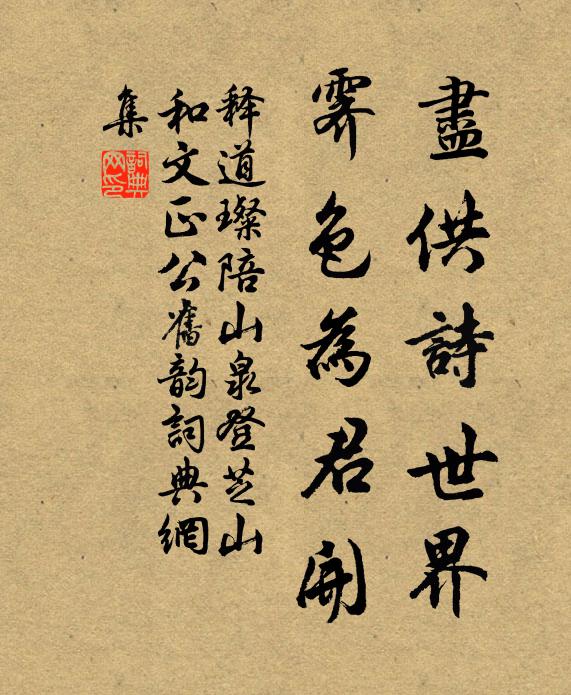 盡供詩世界
霽色為君開
释道璨陪山泉登芝山
和文正公舊韵詞典網
集
詞典
网印